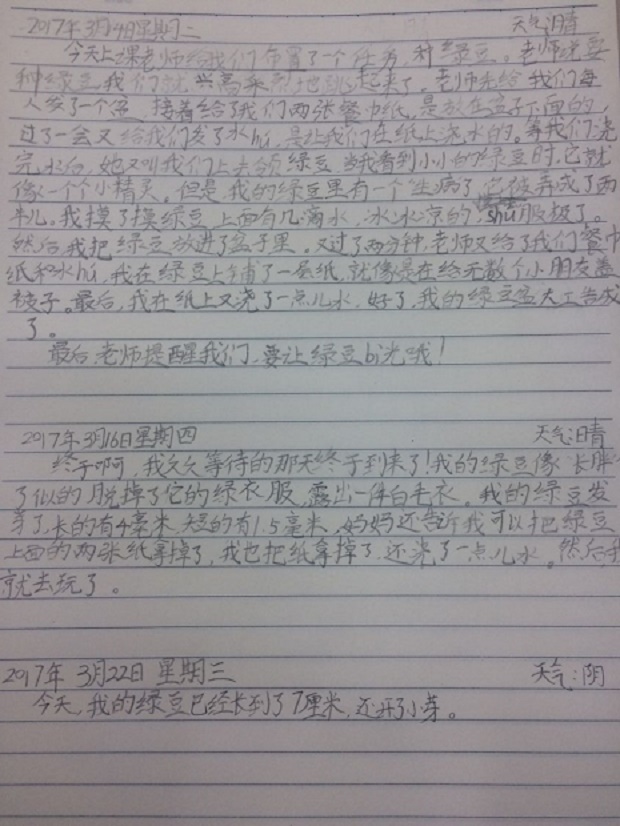 2017年3月14日星期二 天气:晴
今天上课老师给我们布置了一个任务,种绿豆。老师说要
种绿豆,我们就兴高采烈地跳起来了。老师先给我们每
人发了一个盆,接着给了我们两张餐巾纸,是放在盆子下面的,
过了一会又给我们发了水hú,是让我们在纸上浇水的。等我们浇
完水后,她又叫我们上去领绿豆,当我看到小小的绿豆时,它就
像一个个小精灵。但是,我的绿豆里有一个生病了,它被弄成了两
半儿。我摸了摸绿豆上面有几滴水,冰冰凉的,shū服极了。
然后,我把绿豆放进了盆子里,又过了两分钟,老师又给了我们餐巾
纸和水hú,我在绿豆上铺了一层纸,就像是在给无数个小朋友盖
被子。最后,我在纸上又浇了一点儿水,好了,我的绿豆盆大工告成
了。
最后,老师提醒我们,要让绿豆bì光哦!
2017年3月16日星期四 天气:晴
终于啊,我久久等待的那天终于到来了!我的绿豆像长胖
了似的,脱掉了它的绿衣服,露出一件白毛衣。我的绿豆发
芽了,长的有4毫米,短的有1.5毫米,妈妈还告诉我可以把绿豆
上面的两张纸拿掉了,我也把纸拿掉了,还浇了一点儿水。然后我
就去玩了。
2017年3月22日 星期三 天气:阴
今天,我的绿豆已经长到了7厘米,还开了小芽。